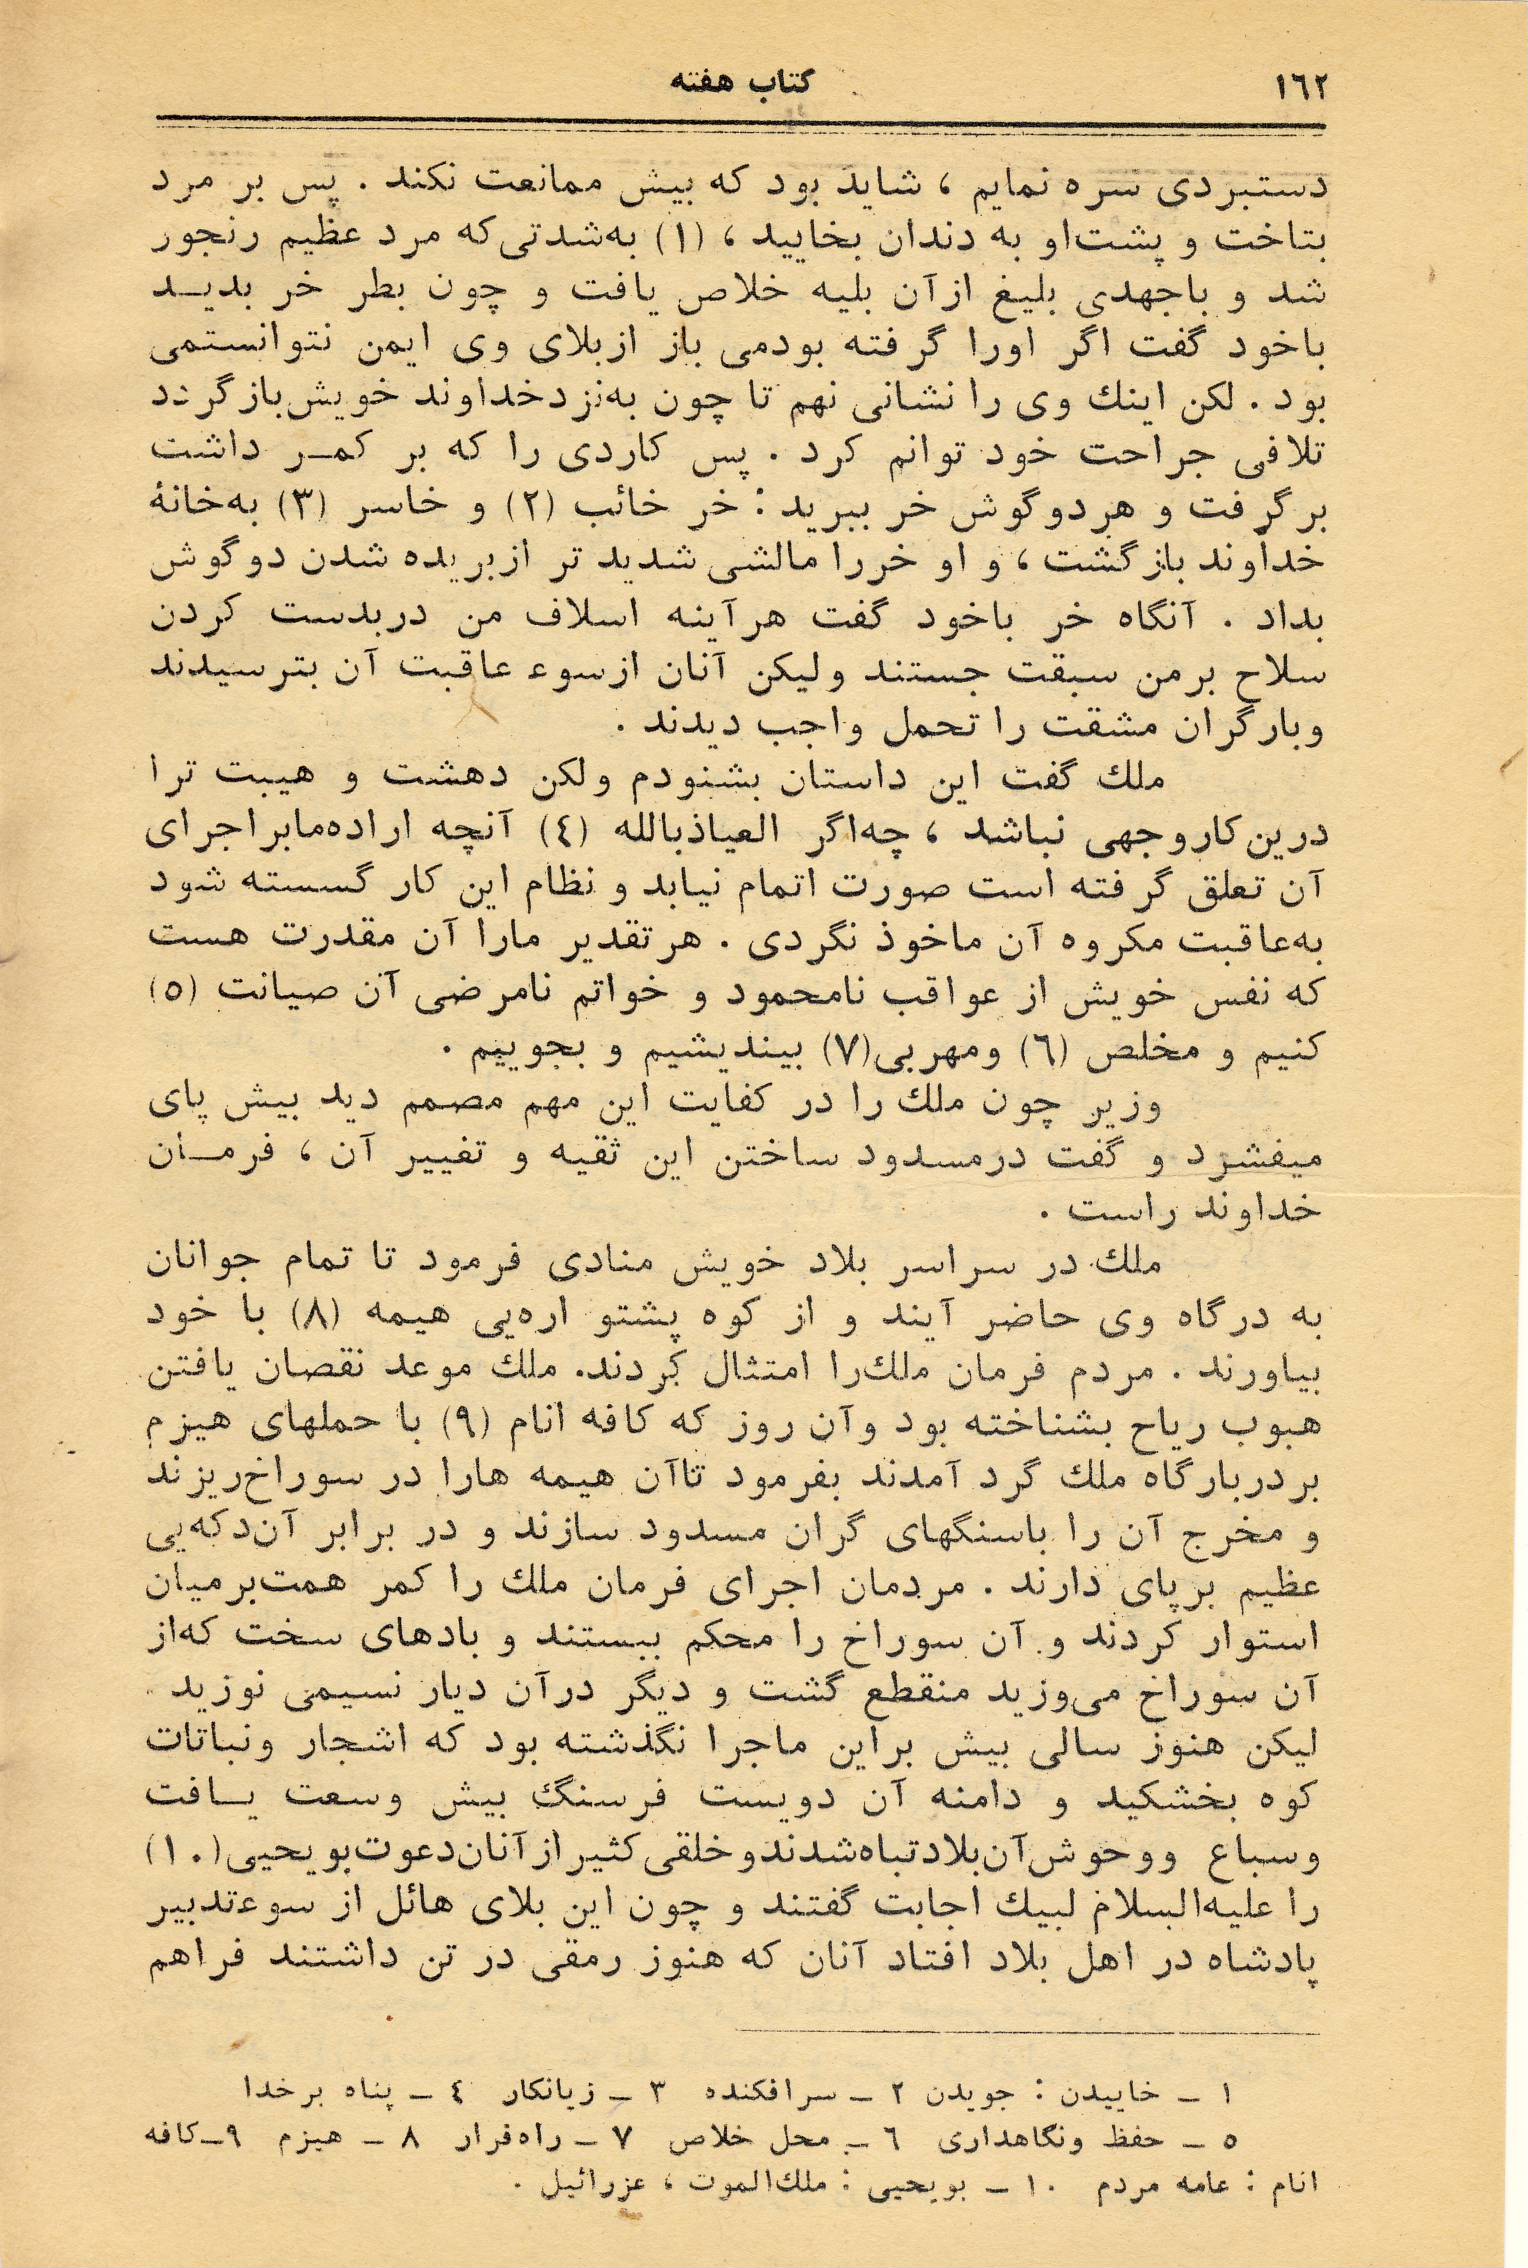 ١٦٢ کتاب هفته
دستبردی سره نمایم ، شاید بود که بیش ممانعت نکند . پس بر مرد
بتاخت و پشت‌او به دندان بخایید ، (١) به‌شدتی‌که مرد عظیم رنجور
شد و باجهدی بلیغ ازآن بلیه خلاص یافت و چون بطر خر بدیـد
باخود گفت اگر اورا گرفته بودمی باز ازبلای وی ایمن نتوانستمی
بود . لکن اینك وی را نشانی نهم تا چون به‌نزدخداوند خویش‌بازگردد
تلافی جراحت خود توانم کرد . پس کاردی را که بر کمـر داشت
برگرفت و هردوگوش خر ببرید : خر خائب (٢) و خاسر (٣) به‌خانهٔ
خداوند بازگشت ، و او خررا مالشی شدید تر ازبریده شدن دوگوش
بداد . آنگاه خر باخود گفت هرآینه اسلاف من دربدست کردن
سلاح برمن سبقت جستند ولیکن آنان ازسوء عاقبت آن بترسیدند
وبارگران مشقت را تحمل واجب دیدند .
ملك گفت این داستان بشنودم ولکن دهشت و هیبت ترا
درین‌کاروجهی نباشد ، چه‌اگر العیاذبالله (٤) آنچه اراده‌مابراجرای
آن تعلق گرفته است صورت اتمام نیابد و نظام این کار گسسته شود
به‌عاقبت مکروه آن ماخوذ نگردی . هرتقدیر مارا آن مقدرت هست
که نفس خویش از عواقب نامحمود و خواتم نامرضی آن صیانت (٥)
کنیم و مخلص (٦) ومهربی(٧) بیندیشیم و بجوییم .
وزیر چون ملك را در کفایت این مهم مصمم دید بیش پای
میفشرد و گفت درمسدود ساختن این ثقیه و تغییر آن ، فرمـان
خداوند راست .
ملك در سراسر بلاد خویش منادی فرمود تا تمام جوانان
به درگاه وی حاضر آیند و از کوه پشتو اره‌یی هیمه (٨) با خود
بیاورند . مردم فرمان ملك‌را امتثال کردند. ملك موعد نقصان یافتن
هبوب ریاح بشناخته بود وآن روز که کافه انام (٩) با حملهای هیزم
بردربارگاه ملك گرد آمدند بفرمود تاآن هیمه هارا در سوراخ‌ریزند
و مخرج آن را باسنگهای گران مسدود سازند و در برابر آن‌دکه‌یی
عظیم برپای دارند . مردمان اجرای فرمان ملك را کمر همت‌برمیان
استوار کردند و آن سوراخ را محکم ببستند و بادهای سخت که‌از
آن سوراخ می‌وزید منقطع گشت و دیگر درآن دیار نسیمی نوزید
لیکن هنوز سالی بیش براین ماجرا نگذشته بود که اشجار ونباتات
کوه بخشکید و دامنه آن دویست فرسنگ بیش وسعت یـافت
وسباع ووحوش‌آن‌بلادتباه‌شدندوخلقی‌کثیرازآنان‌دعوت‌بویحیی(١٠)
را علیه‌السلام لبیك اجابت گفتند و چون این بلای هائل از سوءتدبیر
پادشاه در اهل بلاد افتاد آنان که هنوز رمقی در تن داشتند فراهم
١ ـ خاییدن : جویدن ٢ ـ سرافکنده ٣ ـ زیانکار ٤ ـ پناه برخدا
٥ ـ حفظ ونگاهداری ٦ ـ محل خلاص ٧ ـ راه‌فرار ٨ ـ هیزم ٩ـکافه
انام : عامه مردم ١٠ ـ بویحیی : ملك‌الموت ، عزرائیل .